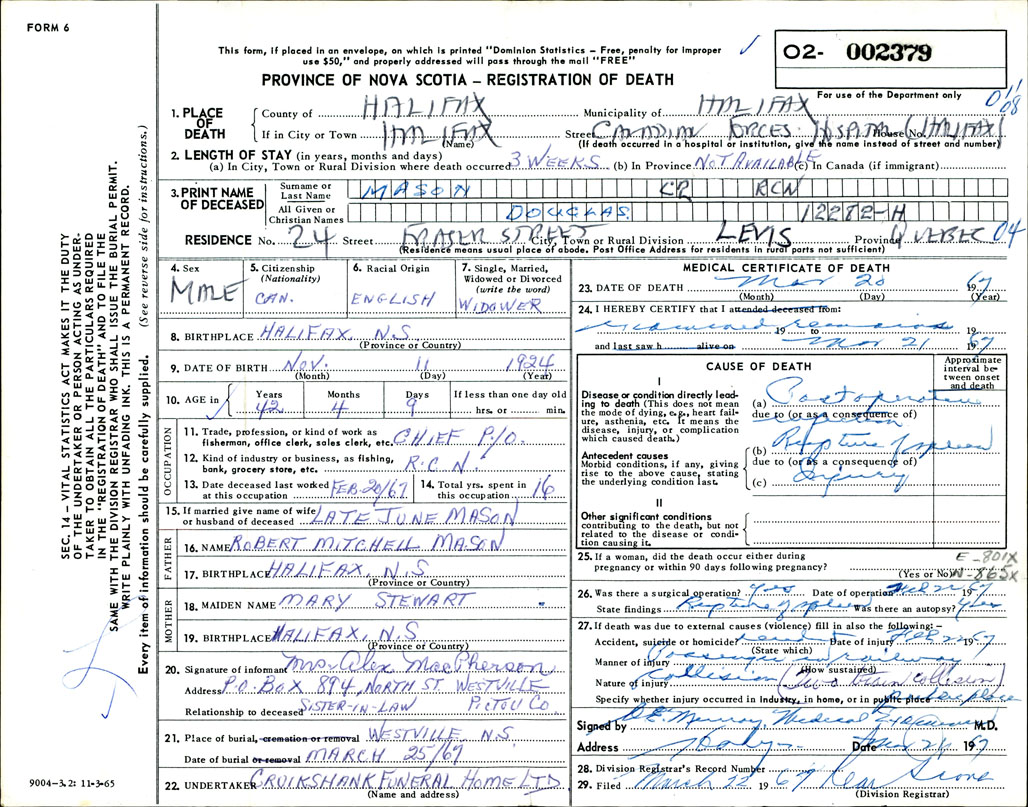 FORM 6
This form, if placed in an envelope, on which is printed "Dominion Statistics – Free, penalty for improper
use $50," and properly addressed will pass through the mail "FREE"
PROVINCE OF NOVA SCOTIA – REGISTRATION OF DEATH
02- 002379
For use of the Department only
1. PLACE OF DEATH
County of HALIFAX Municipality of HALIFAX
If in City or Town HALIFAX Street CANADIAN FORCES HOSPITAL House No. (HALIFAX)
(Name) (If death occurred in a hospital or institution, give the name instead of street and number)
2. LENGTH OF STAY (in years, months and days)
(a) In City, Town or Rural Division where death occurred 3 WEEKS (b) In Province NOT AVAILABLE (c) In Canada (if immigrant)
3. PRINT NAME OF DECEASED
Surname or Last Name MASON CP RCN
All Given or Christian Names DOUGLAS 12282-H
RESIDENCE No. 24 Street FRASER STREET City, Town or Rural Division LEVIS Province QUEBEC 04
(Residence means usual place of abode. Post Office Address for residents in rural parts not sufficient)
4. Sex MALE
5. Citizenship (Nationality) CAN.
6. Racial Origin ENGLISH
7. Single, Married, Widowed or Divorced (write the word) WIDOWER
8. BIRTHPLACE HALIFAX, N.S
(Province or Country)
9. DATE OF BIRTH NOV. 11 1924
(Month) (Day) (Year)
10. AGE in Years 42 Months 4 Days 9 If less than one day old hrs. or min.
OCCUPATION
11. Trade, profession, or kind of work as fisherman, office clerk, sales clerk, etc. CHIEF P/O.
12. Kind of industry or business, as fishing, bank, grocery store, etc. R.C.N.
13. Date deceased last worked at this occupation FEB. 20/67
14. Total yrs. spent in this occupation 16
15. If married give name of wife or husband of deceased LATE JUNE MASON
FATHER
16. NAME ROBERT MITCHELL MASON
17. BIRTHPLACE HALIFAX, N.S
(Province or Country)
MOTHER
18. MAIDEN NAME MARY STEWART
19. BIRTHPLACE HALIFAX, N.S
(Province or Country)
20. Signature of informant Mrs. Alex MacPherson
Address P.O. BOX 894, NORTH ST WESTVILLE
Relationship to deceased SISTER-IN-LAW PICTOU CO.
21. Place of burial, cremation or removal WESTVILLE N.S.
Date of burial or removal MARCH 25/67
22. UNDERTAKER CRUIKSHANK FUNERAL HOME LTD
(Name and address)
MEDICAL CERTIFICATE OF DEATH
23. DATE OF DEATH Mar 20 1967
(Month) (Day) (Year)
24. I HEREBY CERTIFY that I attended deceased from:
19 to 19
and last saw h alive on Mar 21 1967
CAUSE OF DEATH
Approximate interval between onset and death
I
Disease or condition directly leading to death (This does not mean the mode of dying, e.g., heart failure, asthenia, etc. It means the disease, injury, or complication which caused death.)
(a) Postoperative
due to (or as a consequence of)
Antecedent causes
Morbid conditions, if any, giving rise to the above cause, stating the underlying condition last.
(b) Rupture of spleen
due to (or as a consequence of)
(c) Injury
II
Other significant conditions
contributing to the death, but not related to the disease or condition causing it.
25. If a woman, did the death occur either during pregnancy or within 90 days following pregnancy?
(Yes or No)
E-801X
N-865X
26. Was there a surgical operation? Yes Date of operation 1967
State findings Rupture of spleen Was there an autopsy? Yes
27. If death was due to external causes (violence) fill in also the following:–
Accident, suicide or homicide? Date of injury Feb 22 1967
(State which)
Manner of injury Passenger in railway
(How sustained)
Nature of injury Collision (Two Train Collision)
Specify whether injury occurred in Industry, in home, or in public place
Signed by Murray, Medical Examiner M.D.
Address Date Mar 1967
28. Division Registrar's Record Number
29. Filed March 22 1967
(Division Registrar)
SEC. 14 – VITAL STATISTICS ACT MAKES IT THE DUTY
OF THE UNDERTAKER OR PERSON ACTING AS UNDER-
TAKER TO OBTAIN ALL THE PARTICULARS REQUIRED
IN THE "REGISTRATION OF DEATH" AND TO FILE THE
SAME WITH THE DIVISION REGISTRAR WHO SHALL ISSUE THE BURIAL PERMIT.
WRITE PLAINLY WITH UNFADING INK. THIS IS A PERMANENT RECORD.
Every item of information should be carefully supplied. (See reverse side for instructions.)
9004–3.2: 11-3-65